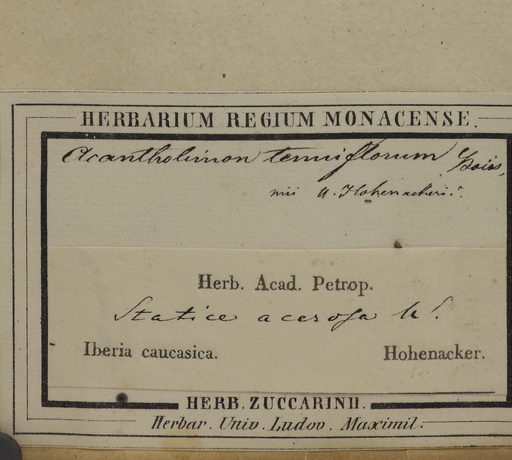 HERBARIUM REGIUM MONACENSE.
Acantholimon tenuiflorum Boiss,
A. Hohenackeri.
Herb. Acad. Petrop.
Statice acerosa
Iberia caucasica. Hohenacker.
HERB. ZUCCARINII.
Herbar. Univ. Ludov. Maximil.